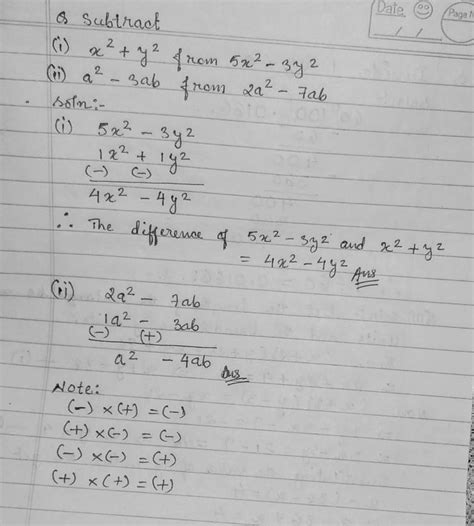 Date
Page N
Q Subtract
(i) x² + y² from 5x² - 3y²
(ii) a² - 3ab from 2a² - 7ab
Soln:-
(i) 5x² - 3y²
1x² + 1y²
(-) (-)
4x² - 4y²
∴ The difference of 5x² - 3y² and x² + y²
= 4x² - 4y² Ans
(ii) 2a² - 7ab
1a² - 3ab
(-) (+)
a² - 4ab Ans
Note:
(-) × (+) = (-)
(+) × (-) = (-)
(-) × (-) = (+)
(+) × (+) = (+)